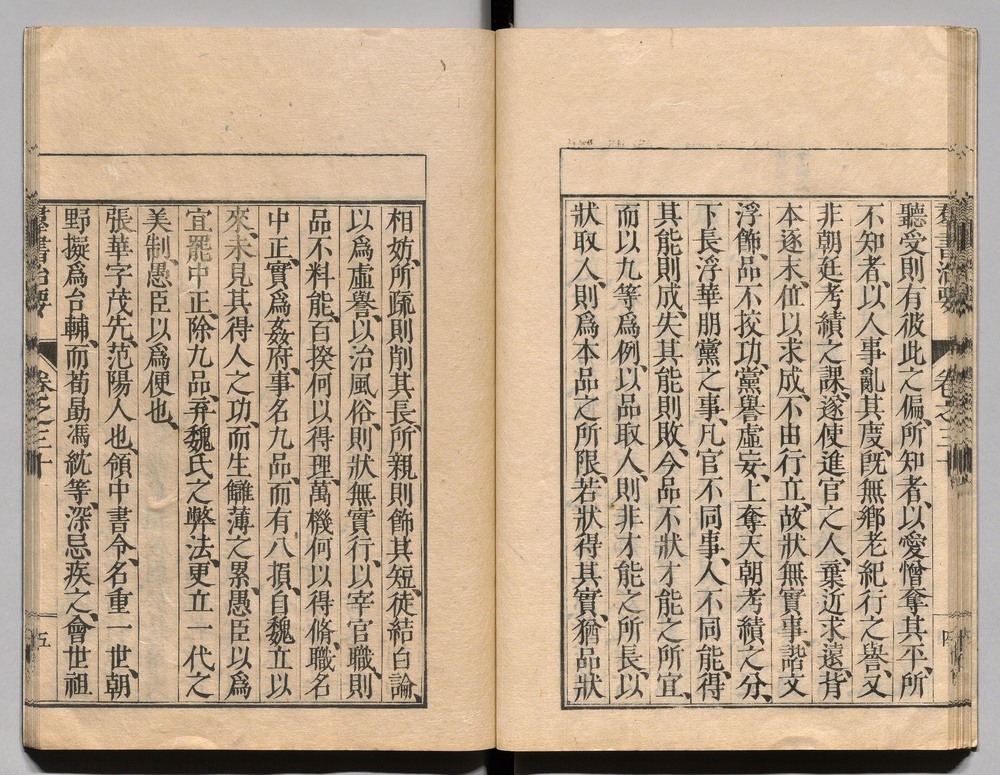 羣書治要 卷之三十 四
聽受則有彼此之偏、所知者、以愛憎奪其平、所
不知者、以人事亂其度、旣無鄉老紀行之譽、又
非朝廷考績之課、遂使進官之人、棄近求遠、背
本逐末、位以求成、不由行立、故狀無實事、諧文
浮飾、品不挍功、黨譽虛妄、上奪天朝考績之分、
下長浮華朋黨之事、凡官不同事、人不同能、得
其能則成、失其能則敗、今品不狀才能之所宜、
而以九等爲例、以品取人、則非才能之所長、以
狀取人、則爲本品之所限、若狀得其實、猶品狀
相妨、所疏則削其長、所親則飾其短、徒結白論、
以爲虛譽、以治風俗、則狀無實行、以宰官職、則
品不料能、百揆何以得理、萬機何以得脩、職名
中正、實爲姦府、事名九品、而有八損、自魏立以
來、未見其得人之功、而生讎薄之累、愚臣以爲
宜罷中正、除九品、弃魏氏之弊法、更立一代之
美制、愚臣以爲便也、
張華字茂先、范陽人也、領中書令、名重一世、朝
野擬爲台輔、而荀勗馮紞等、深忌疾之、會世祖
羣書治要 卷之三十 五